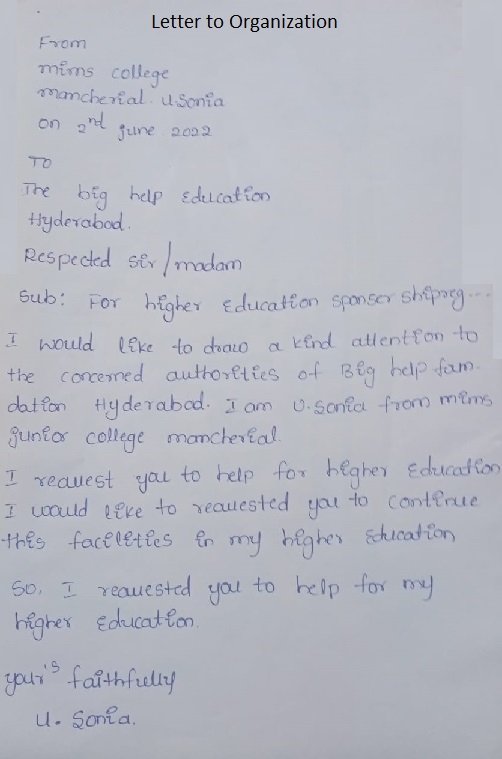 Letter to Organization
From
mims college
mancherial. U.Sonia
on 2nd june 2022
TO
The big help Education
Hyderabad.
Respected sir/madam
Sub: For higher Education sponser shipreg---
I would like to draw a kind attention to
the concerned authorities of Big help foun
dation Hyderabad. I am U.sonia from mims
junior college mancherial.
I reauest you to help for higher Education
I would like to reauested you to continue
this facileties in my higher Education
So, I reauested you to help for my
higher Education.
your's faithfully
U. Sonia.